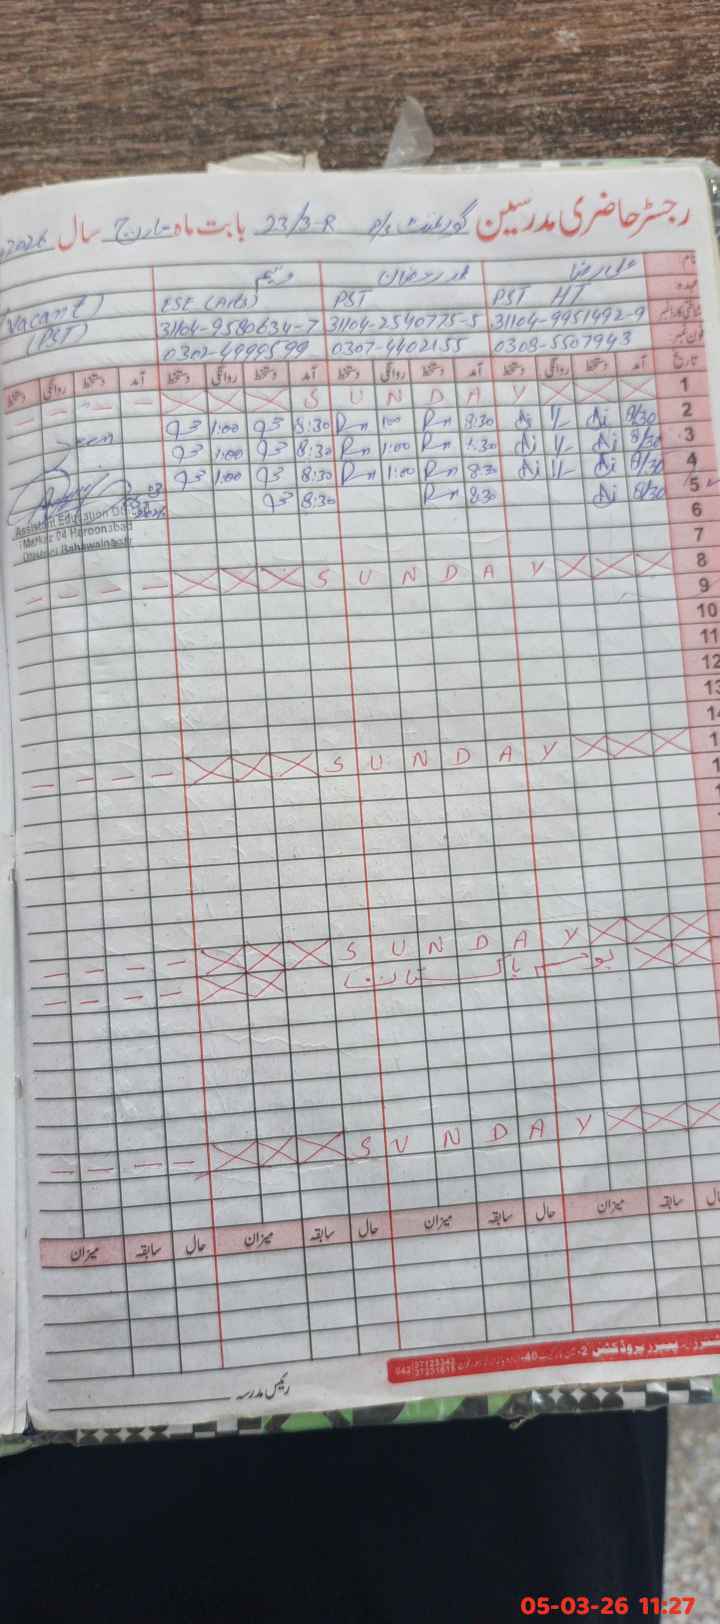 رجسٹر حاضری مدرسین گورنمنٹ P/S 23/3-R بابت ماہ مارچ سال 2026
نام علی رضا محمد رمضان وسیم
عہدہ PST HT PST ESE (Arts) (Vacant)
31104-9951492-9 31104-2540775-5 31104-9580634-7 (PST)
فون نمبر 0303-5507943 0307-4402155 0302-4999599
تاریخ آمد دستخط روانگی دستخط آمد دستخط روانگی دستخط آمد دستخط روانگی دستخط آمد دستخط روانگی دستخط
1 S U N D A Y
2 8/30 8:30 8:30 1:00
3 8/30 1:00 8:30 1:00
4 8/30 8:30 1:00 8:30 1:00
5 8/30 8:30 8:30
Seen
Assistant Education
Markaz 04 Haroonabad
District Bahawalnagar
6
7
8 S U N D A Y
9
10
11
12
13
S U N D A Y
S U N D A Y
یوم پاکستان
S U N D A Y
حال سابقہ میزان حال سابقہ میزان حال سابقہ میزان حال سابقہ میزان
رئیس مدرسہ
05-03-26 11:27